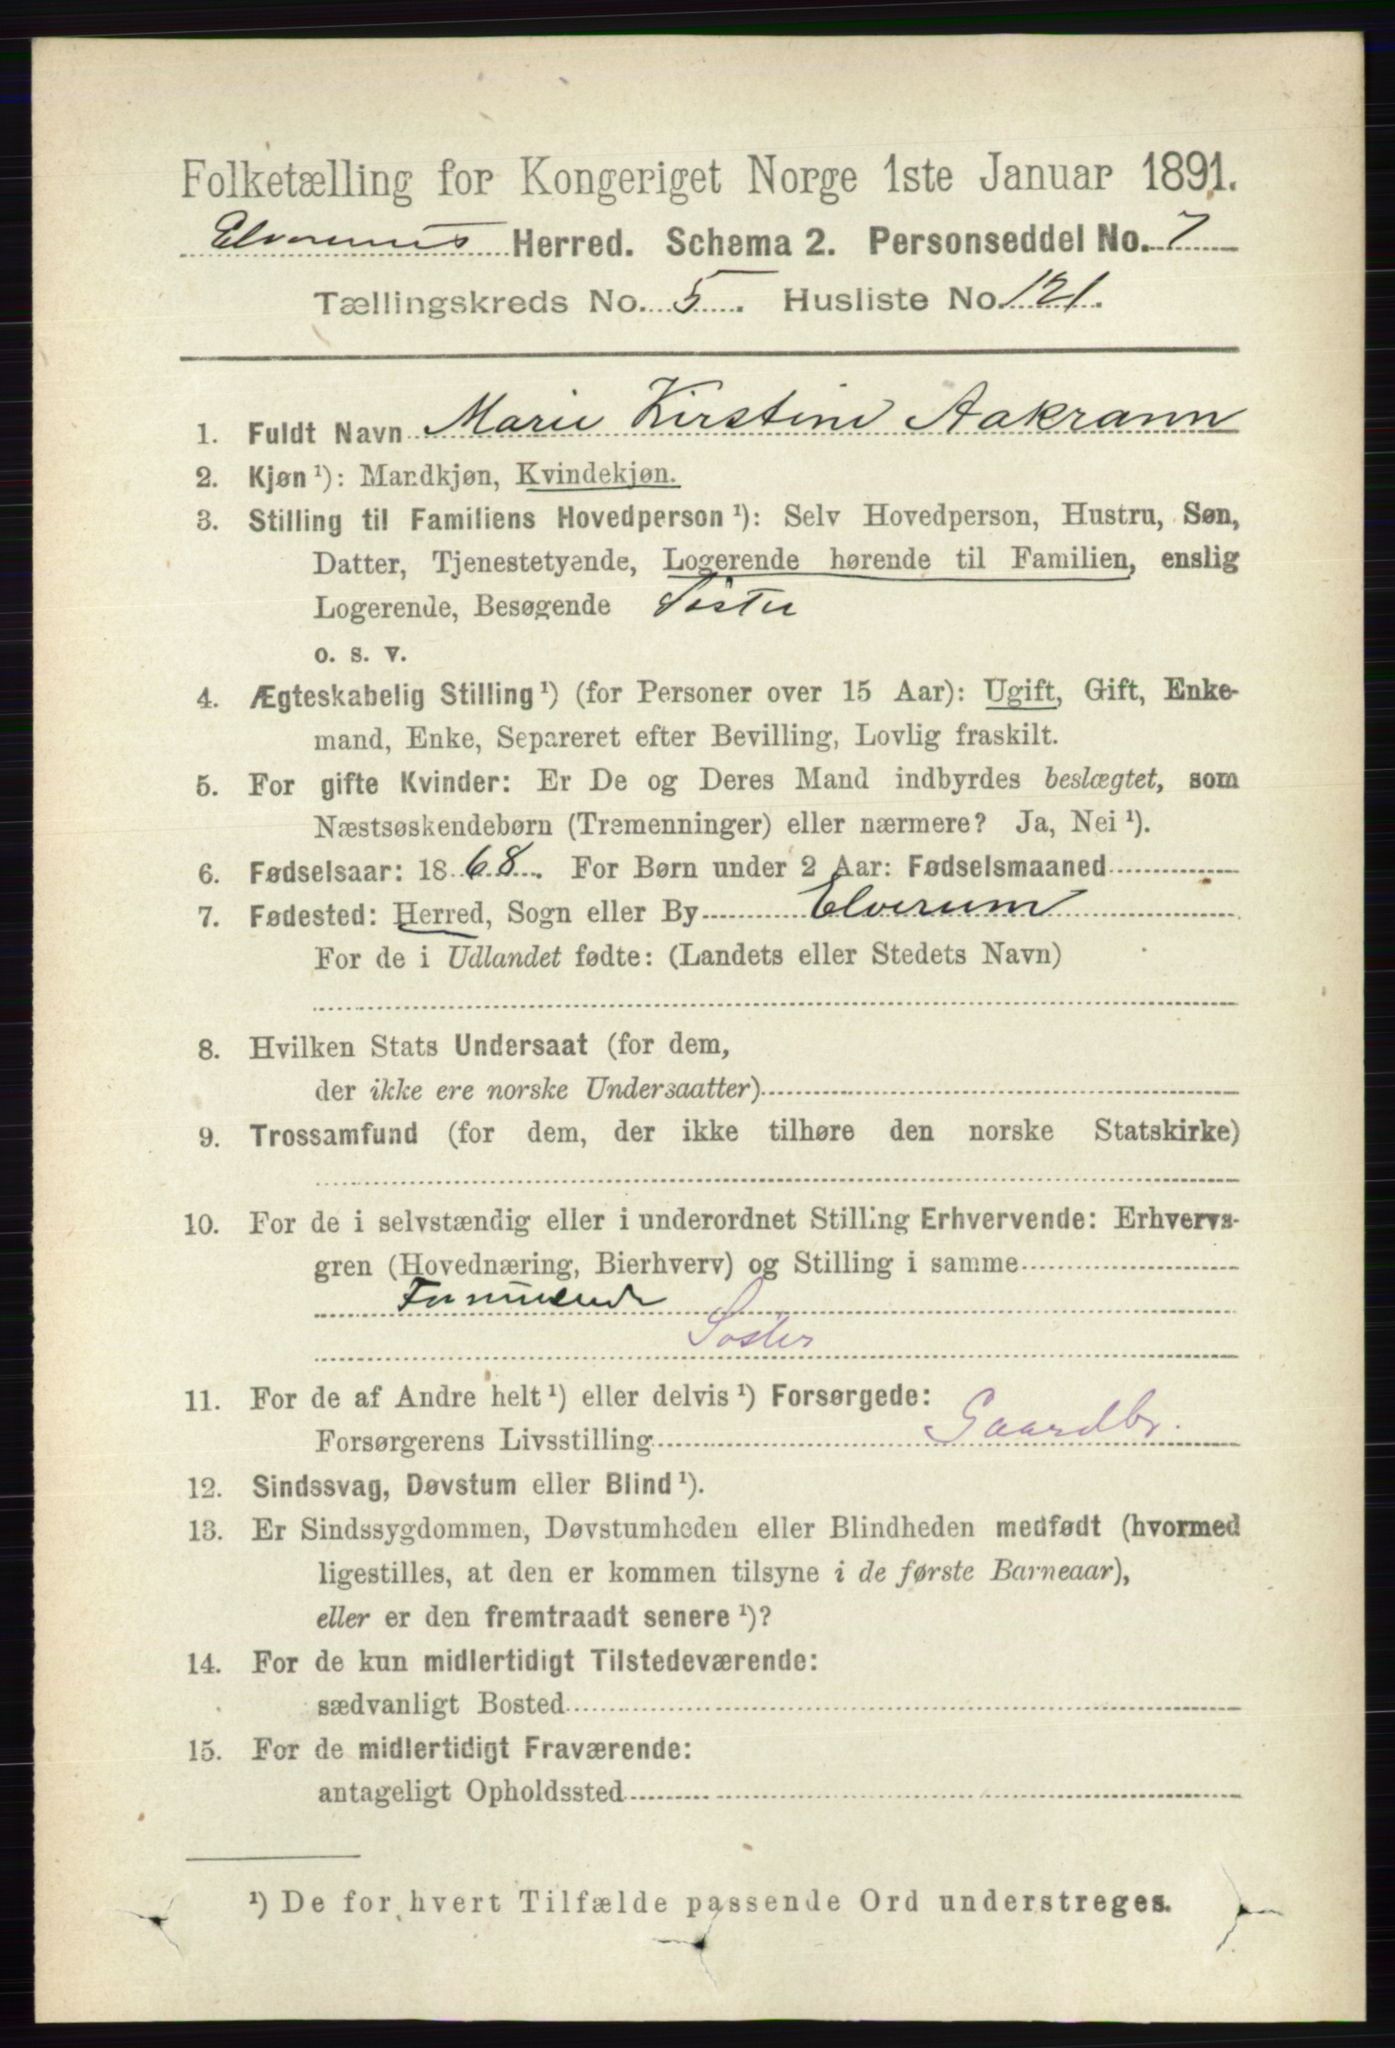 Folketælling for Kongeriget Norge 1ste Januar 1891.
Elverums Herred. Schema 2. Personseddel No. 7
Tællingskreds No. 5. Husliste No. 121.
1. Fuldt Navn Marie Kirstine Aakrann
2. Kjøn ¹): Mandkjøn, Kvindekjøn.
3. Stilling til Familiens Hovedperson ¹): Selv Hovedperson, Hustru, Søn,
Datter, Tjenestetyende, Logerende hørende til Familien, enslig
Logerende, Besøgende Søster
o. s. v.
4. Ægteskabelig Stilling ¹) (for Personer over 15 Aar): Ugift, Gift, Enke-
mand, Enke, Separeret efter Bevilling, Lovlig fraskilt.
5. For gifte Kvinder: Er De og Deres Mand indbyrdes beslægtet, som
Næstsøskendebørn (Tremenninger) eller nærmere? Ja, Nei ¹).
6. Fødselsaar: 1868. For Børn under 2 Aar: Fødselsmaaned
7. Fødested: Herred, Sogn eller By Elverum
For de i Udlandet fødte: (Landets eller Stedets Navn)
8. Hvilken Stats Undersaat (for dem,
der ikke ere norske Undersaatter)
9. Trossamfund (for dem, der ikke tilhøre den norske Statskirke)
10. For de i selvstændig eller i underordnet Stilling Erhvervende: Erhvervs-
gren (Hovednæring, Bierhverv) og Stilling i samme
Søster
11. For de af Andre helt ¹) eller delvis ¹) Forsørgede:
Forsørgerens Livsstilling Gaardbr.
12. Sindssvag, Døvstum eller Blind ¹).
13. Er Sindssygdommen, Døvstumheden eller Blindheden medfødt (hvormed
ligestilles, at den er kommen tilsyne i de første Barneaar),
eller er den fremtraadt senere ¹)?
14. For de kun midlertidigt Tilstedeværende:
sædvanligt Bosted
15. For de midlertidigt Fraværende:
antageligt Opholdssted
¹) De for hvert Tilfælde passende Ord understreges.